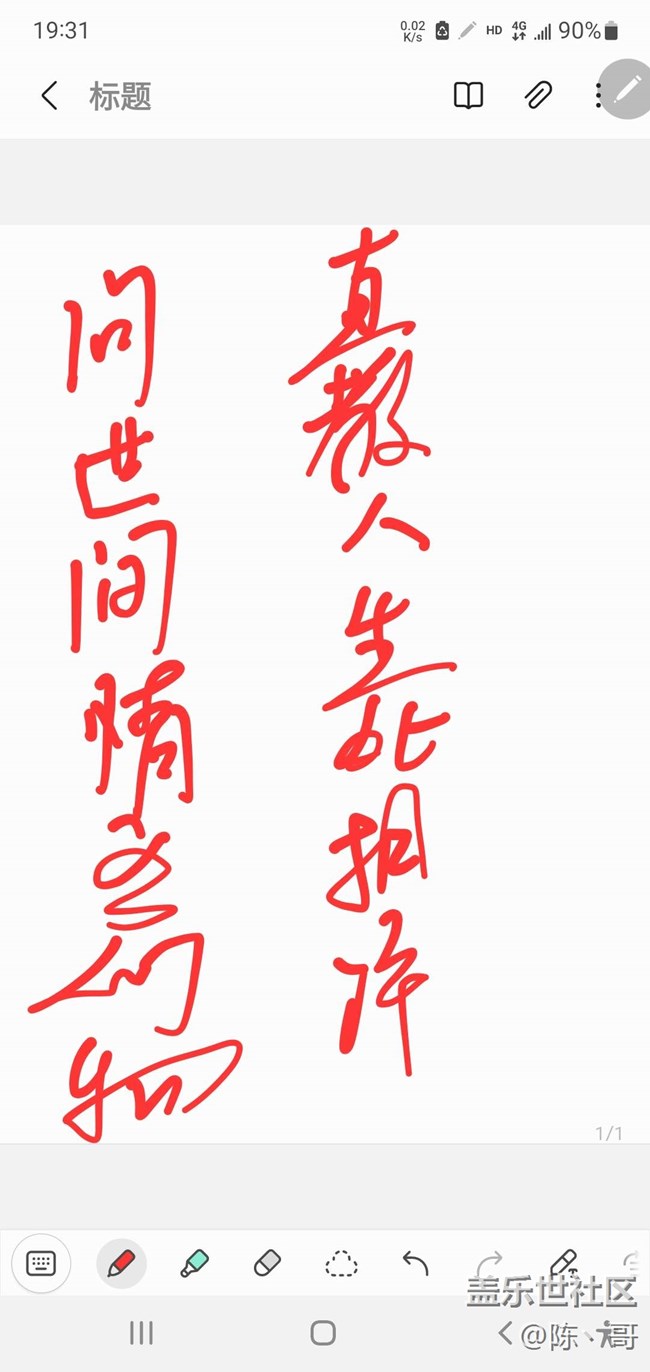 19:31
0.02
K/s
HD
4G
90%
标题
问世间情为何物
直教人生死相许
1/1
盖乐世社区
@陈丶哥